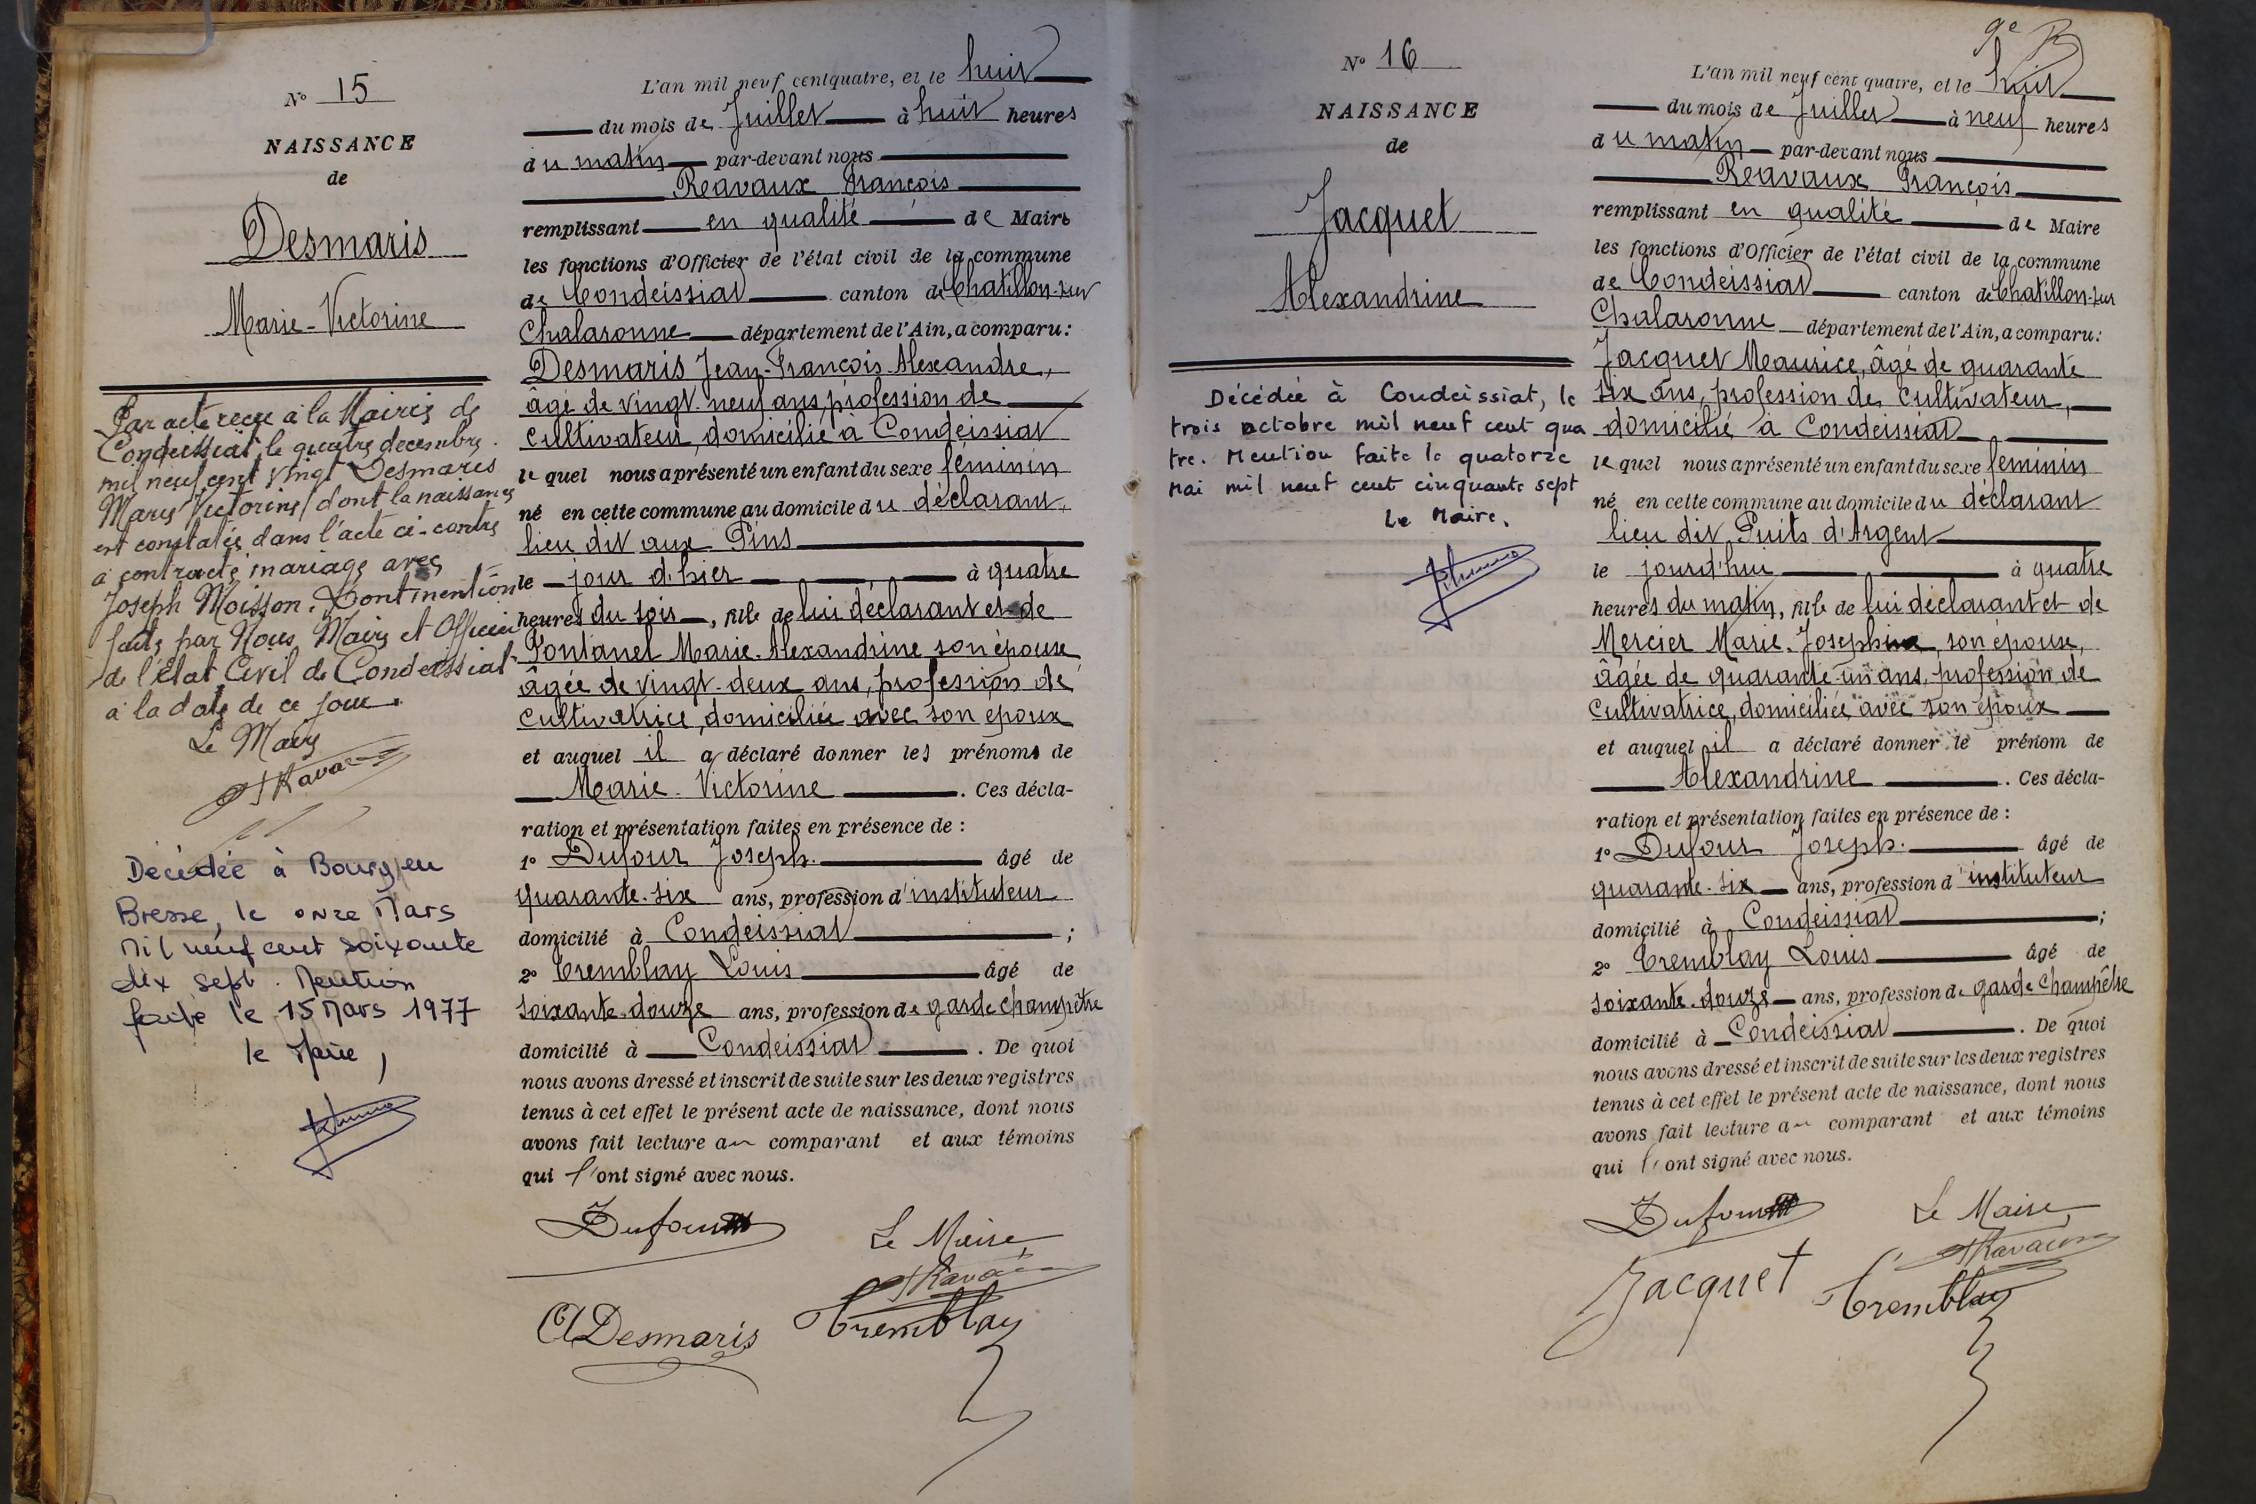 N° 15
NAISSANCE
de
Desmaris
Marie-Victorine
Par acte reçu à la Mairie de
Condeissiat, le quatre décembre
mil neuf cent vingt Desmaris
Marie Victorine (dont la naissance
est constatée dans l'acte ci-contre
a contracté mariage avec
Joseph Moisson. Dont mention
faite par Nous, Maire et Officier
de l'Etat Civil de Condeissiat
à la date de ce jour.
Le Maire
Décédée à Bourg en
Bresse, le onze Mars
Mil neuf cent soixante
dix sept. Mention
faite le 15 Mars 1977
le Maire,
L'an mil neuf cent quatre, et le huit
du mois de Juillet à huit heures
du matin par-devant nous
Reavaux François
remplissant en qualité de Maire
les fonctions d'Officier de l'état civil de la commune
de Condeissiat canton de Chatillon-sur
Chalaronne département de l'Ain, a comparu:
Desmaris Jean-François-Alexandre,
âgé de vingt-neuf ans, profession de
cultivateur, domicilié à Condeissiat
le quel nous a présenté un enfant du sexe féminin
né en cette commune au domicile du déclarant,
lieu dit aux Pins
le jour d'hier à quatre
heures du soir, fille de lui déclarant et de
Pontanel Marie-Alexandrine son épouse
âgée de vingt-deux ans, profession de
cultivatrice, domiciliée avec son époux
et auquel il a déclaré donner les prénoms de
Marie-Victorine. Ces décla-
ration et présentation faites en présence de :
1° Dufour Joseph. âgé de
quarante-six ans, profession d'instituteur
domicilié à Condeissiat ;
2° Tremblay Louis âgé de
soixante-douze ans, profession de garde champêtre
domicilié à Condeissiat. De quoi
nous avons dressé et inscrit de suite sur les deux registres
tenus à cet effet le présent acte de naissance, dont nous
avons fait lecture au comparant et aux témoins
qui l'ont signé avec nous.
Dufour
Le Maire,
Ravaux
A Desmaris
Tremblay
9e
N° 16
NAISSANCE
de
Jacquet
Alexandrine
Décédée à Condeissiat, le
trois octobre mil neuf cent qua
tre. Mention faite le quatorze
Mai mil neuf cent cinquante sept
Le Maire,
L'an mil neuf cent quatre, et le huit
du mois de Juillet à neuf heures
du matin par-devant nous
Reavaux François
remplissant en qualité de Maire
les fonctions d'Officier de l'état civil de la commune
de Condeissiat canton de Chatillon-sur
Chalaronne département de l'Ain, a comparu:
Jacquet Maurice, âgé de quarante
six ans, profession de cultivateur,
domicilié à Condeissiat
le quel nous a présenté un enfant du sexe féminin
né en cette commune au domicile du déclarant
lieu dit Puits d'Argent
le jourd'hui à quatre
heures du matin, fille de lui déclarant et de
Mercier Marie-Josephine, son épouse,
âgée de quarante-un ans, profession de
cultivatrice, domiciliée avec son époux
et auquel il a déclaré donner le prénom de
Alexandrine. Ces décla-
ration et présentation faites en présence de :
1° Dufour Joseph. âgé de
quarante-six ans, profession d'instituteur
domicilié à Condeissiat ;
2° Tremblay Louis âgé de
soixante-douze ans, profession de garde champêtre
domicilié à Condeissiat. De quoi
nous avons dressé et inscrit de suite sur les deux registres
tenus à cet effet le présent acte de naissance, dont nous
avons fait lecture au comparant et aux témoins
qui l'ont signé avec nous.
Dufour
Le Maire,
Ravaux
Jacquet
Tremblay